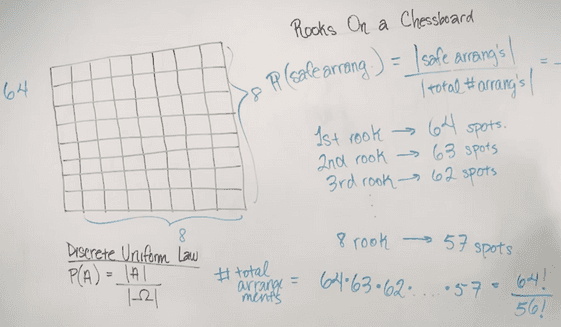 Rooks On a Chessboard
64
8
P(safe arrang.) = |safe arrang's| / |total # arrang's| = -
1st rook → 64 spots.
2nd rook → 63 spots
3rd rook → 62 spots
⋮
8 rook → 57 spots
8
Discrete Uniform Law
P(A) = |A| / |Ω|
# total arrangements = 64·63·62· ... ·57 = 64! / 56!